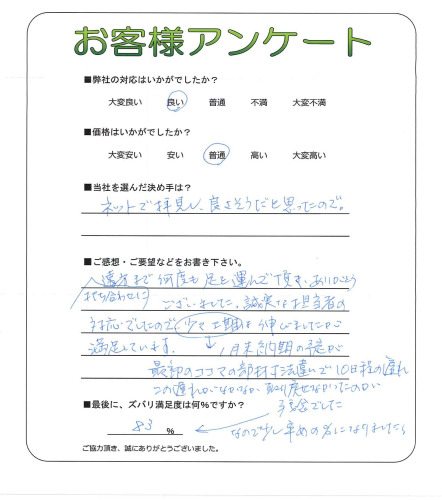 お客様アンケート
■弊社の対応はいかがでしたか?
大変良い 良い 普通 不満 大変不満
■価格はいかがでしたか?
大変安い 安い 普通 高い 大変高い
■当社を選んだ決め手は?
ネットで拝見し、良さそうだと思ったので。
■ご感想・ご要望などをお書き下さい。
遠方まで何度も足を運んで頂き、ありがとう
打ち合わせに
ございました。誠実な担当者の
対応でしたので少々工期は伸びましたが
満足しています。
↓月末納期の予定が
最初のココマの部材寸法違いで10日程の遅れ
この遅れがなかなか取り戻せなかったのが
残念でした
■最後に、ズバリ満足度は何%ですか?
83 %
なので少し辛めの%になりました
ご協力頂き、誠にありがとうございました。